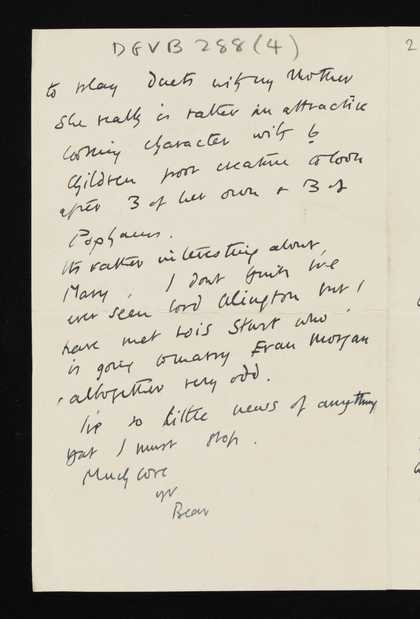 DGVB 288(4)
2
to play duets with my Mother
She really is rather an attractive
looking character with 6
children poor creature to look
after 3 of her own & 3 of
Pophams.
Its rather interesting about
Mary. I dont think Ive
ever seen Lord Alington but I
have met Lois Sturt who
is going to marry Evan Morgan
altogether very odd.
Ive so little news of anything
that I must stop.
Much love
yr
Bear